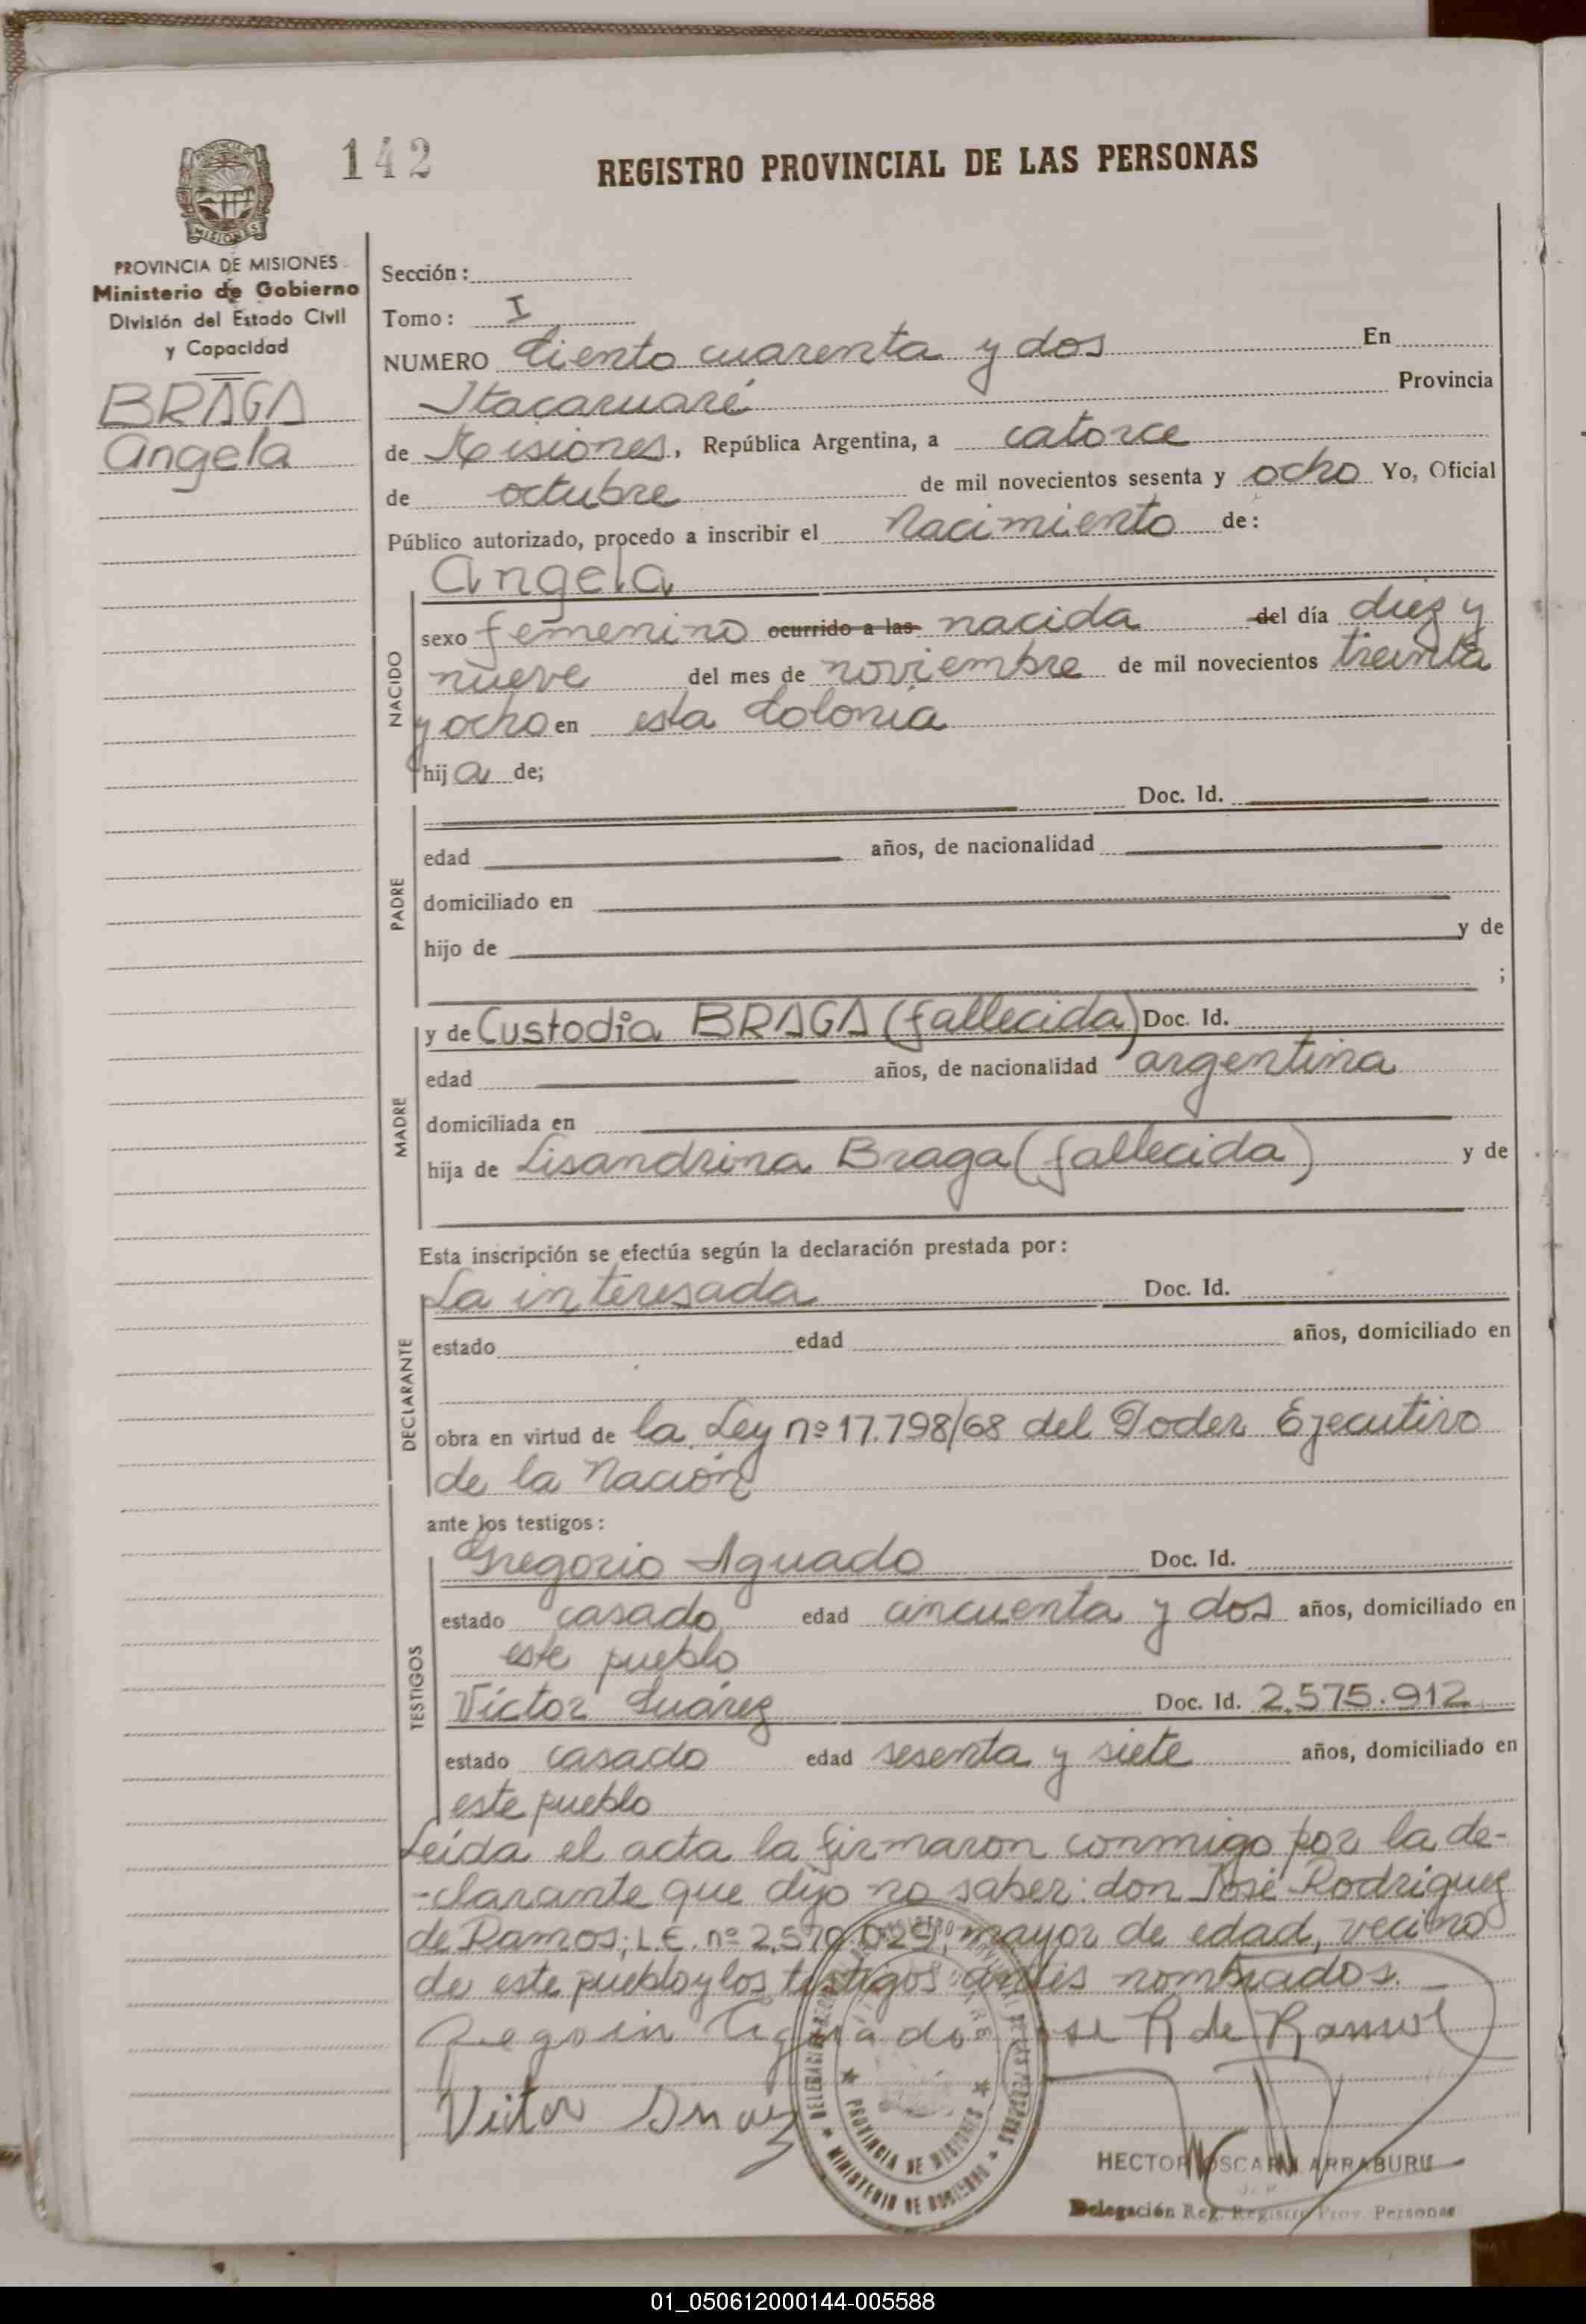 142
REGISTRO PROVINCIAL DE LAS PERSONAS
PROVINCIA DE MISIONES
Ministerio de Gobierno
División del Estado Civil
y Capacidad
BRAGA
Angela
Sección:
Tomo: I
NUMERO Ciento cuarenta y dos En
Itacaruaré Provincia
de Misiones, República Argentina, a catorce
de octubre de mil novecientos sesenta y ocho Yo, Oficial
Público autorizado, procedo a inscribir el Nacimiento de:
Angela
NACIDO
sexo femenino ocurrido a las nacida del día diez y
nueve del mes de noviembre de mil novecientos treinta
y ocho en esta Colonia
hija de;
PADRE
Doc. Id.
edad años, de nacionalidad
domiciliado en
hijo de y de
;
MADRE
y de Custodia BRAGA (fallecida) Doc. Id.
edad años, de nacionalidad argentina
domiciliada en
hija de Lisandrina Braga (fallecida) y de
Esta inscripción se efectúa según la declaración prestada por:
DECLARANTE
La interesada Doc. Id.
estado edad años, domiciliado en
obra en virtud de la Ley nº 17.798/68 del Poder Ejecutivo
de la Nación
ante los testigos:
TESTIGOS
Gregorio Aguado Doc. Id.
estado casado edad cincuenta y dos años, domiciliado en
este pueblo
Víctor Suárez Doc. Id. 2.575.912
estado casado edad sesenta y siete años, domiciliado en
este pueblo
Leída el acta la firmaron conmigo por la de-
-clarante que dijo no saber: don José Rodriguez
de Ramos; L.E. nº 2.570.029, mayor de edad, vecino
de este pueblo y los testigos antes nombrados.
Aguado Jose R de Ramos
Victor Suarez
PROVINCIA DE MISIONES
MINISTERIO DE GOBIERNO
HECTOR OSCAR LARRABURU
Delegación Reg. Registro Prov. Personas
01_050612000144-005588